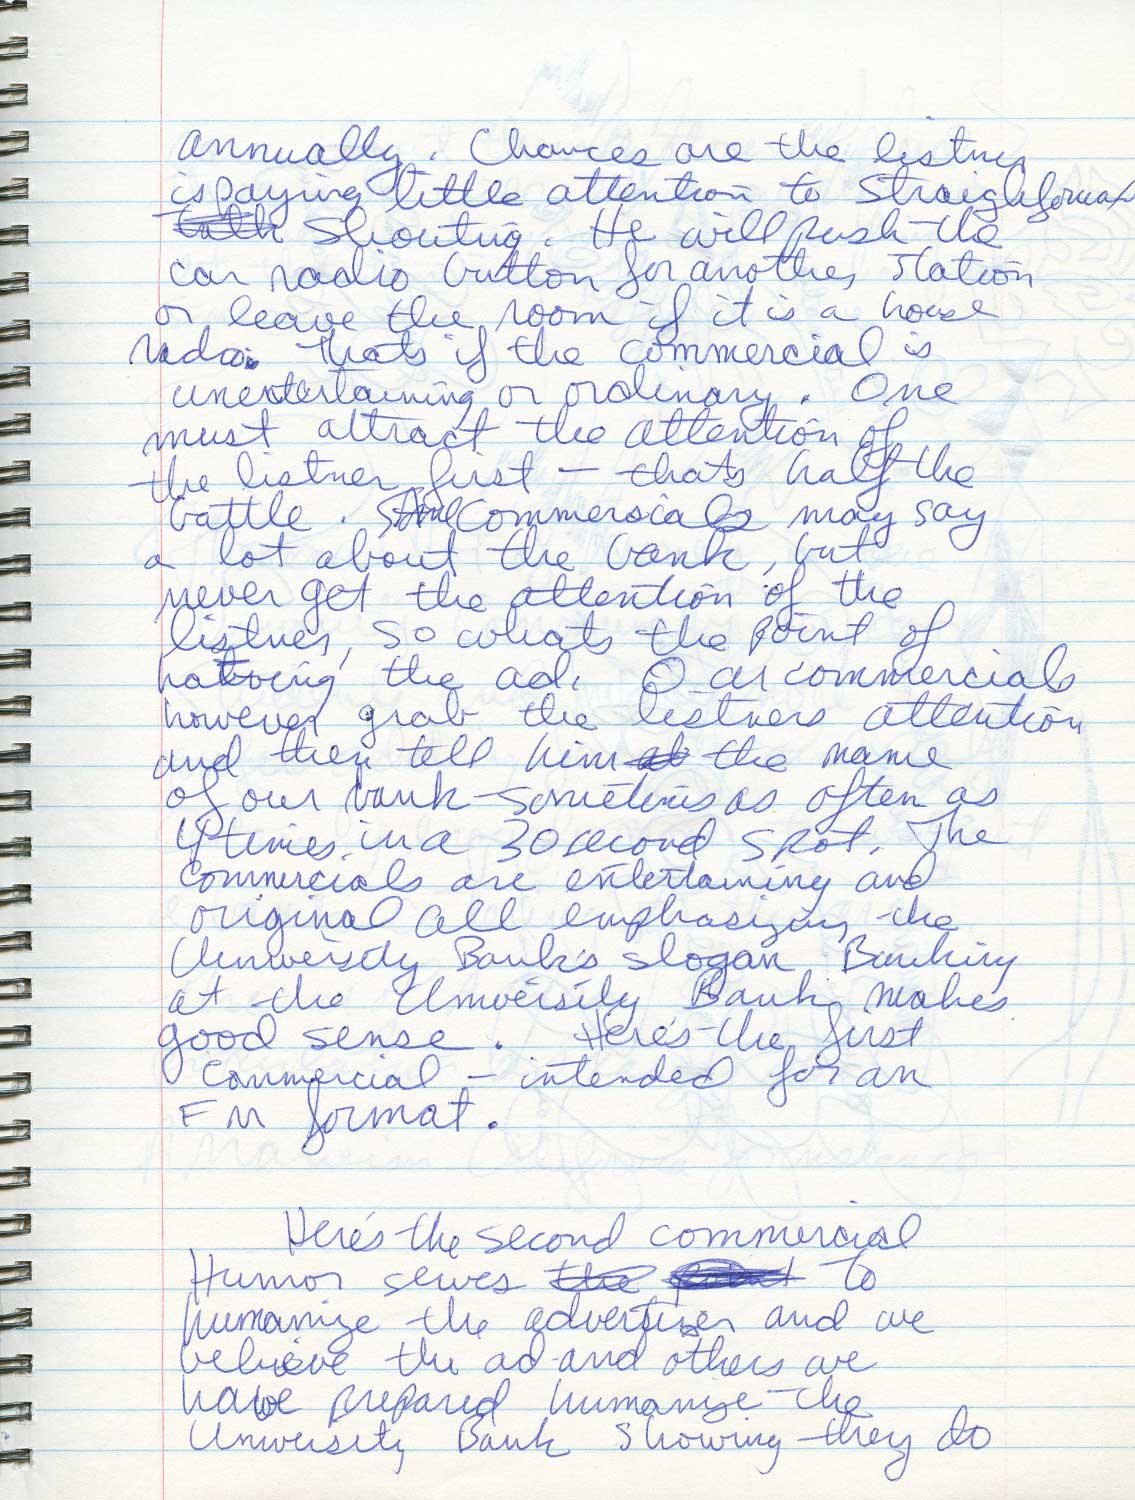 annually. Chances are the listner
is paying little attention to straighforward
talk shouting. He will push the
car radio button for another station
or leave the room if it is a house
radio. thats if the commercial is
unentertaining or ordinary. One
must attract the attention of
the listner first - thats half the
battle. Some Commercials may say
a lot about the bank, but
never get the attention of the
listner, so whats the point of
having the ad. Our commercials
however grab the listners attention
and then tell him the name
of our bank - sometimes as often as
4 times in a 30 second spot. The
commercials are entertaining and
original all emphasizing the
University Bank's slogan Banking
at the University Bank makes
good sense. Here's the first
Commercial - intended for an
FM format.
Here's the second commercial
Humor serves the point to
humanize the advertiser and we
believe the ad and others we
have prepared humanize the
University Bank showing they do